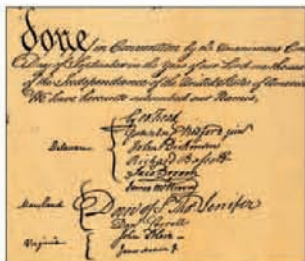 done in Convention by the Unanimous Con
Day of September in the Year of our Lord one thousa
of the Independance of the United States of Americ
We have hereunto subscribed our Names,
Geo Read
Gunning Bedford jun
Delaware
John Dickinson
Richard Bassett
Jaco Broom
James McHenry
Maryland
Dan of St Tho Jenifer
Danl Carroll
John Blair
Virginia
James Madison Jr